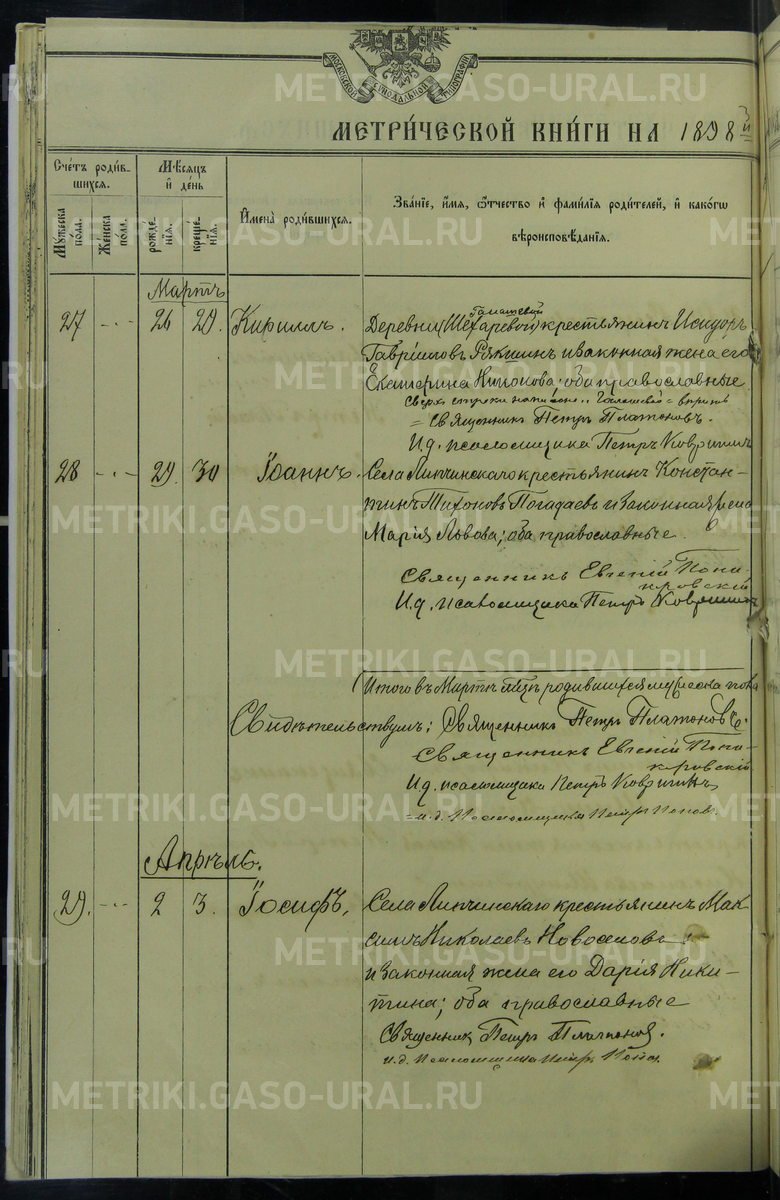 МОСКОВСКОЙ СѴНОДАЛЬНОЙ ТИПОГРАФІИ
МЕТРИ́ЧЕСКОЙ КНИ́ГИ НА 1898й
Счётъ роди́вшихся.
Мѣ́сяцъ и́ де́нь
Му́жеска по́ла.
Же́нска по́ла.
рожде́нїя.
креще́нїя.
И҆мена̀ роди́вшихся.
Зва́нїе, и҆́мя, ѻ҆́тчество и҆ фами́лїя роди́телей, и҆ како́гѡ
вѣроисповѣ́данїя.
Мартъ
27 - · - 26 29. Кириллъ. Деревни (Шехаревой) крестьянинъ Исидоръ
Галашевой
Гавріиловъ Рякшинъ и законная жена его
Екатерина Никонова; оба православные
Сверхъ строки написан. „Галашевой" = вѣрить
= Священникъ Петръ Платоновъ.
И.д. псаломщика Петръ Ковригинъ
28 - · - 29. 30 Іоаннъ. Села Липчинскаго крестьянинъ Констан-
тинъ Тихоновъ Погадаевъ и законная жена
Марія Львова; оба православные.
Священникъ Евгеній Попо-
кровскій
И.д. псаломщика Петръ Ковригинъ
Итого въ Мартѣ мѣц. родившихся мужеска пола
Свидѣтельствуемъ: Священникъ Петръ Платоновъ.
Священникъ Евгеній
кровскій
И.д. псаломщика Петръ Ковригинъ
= и.д. Псаломщика Петръ Поповъ.
Апрѣль.
29. - · - 2 3. Іосифъ, Села Липчинскаго крестьянинъ Мак-
симъ Николаевъ Новоселовъ
и законная жена его Дарія Ники-
тина; оба православные
Священникъ Петръ Платоновъ.
и.д. Псаломщика Петръ Попов
METRIKI.GASO-URAL.RU